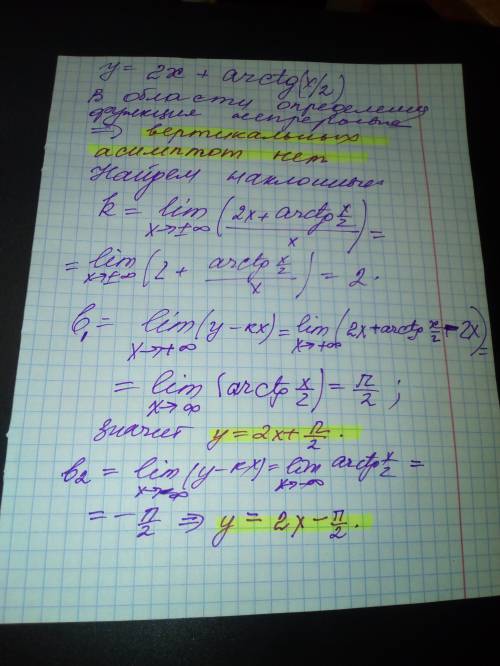 y = 2x + arctg(x/2)
В области определения
функция непрерывна
⇒ вертикальных
асимптот нет
Найдем наклонные:
k = lim x→±∞ ((2x + arctg x/2)/x) =
= lim x→±∞ (2 + (arctg x/2)/x) = 2.
b₁ = lim x→+∞ (y − kx) = lim x→+∞ (2x + arctg x/2 − 2x) =
= lim x→∞ (arctg x/2) = π/2 ;
значит y = 2x + π/2.
b₂ = lim x→−∞ (y − kx) = lim x→−∞ arctg x/2 =
= − π/2 ⇒ y = 2x − π/2.